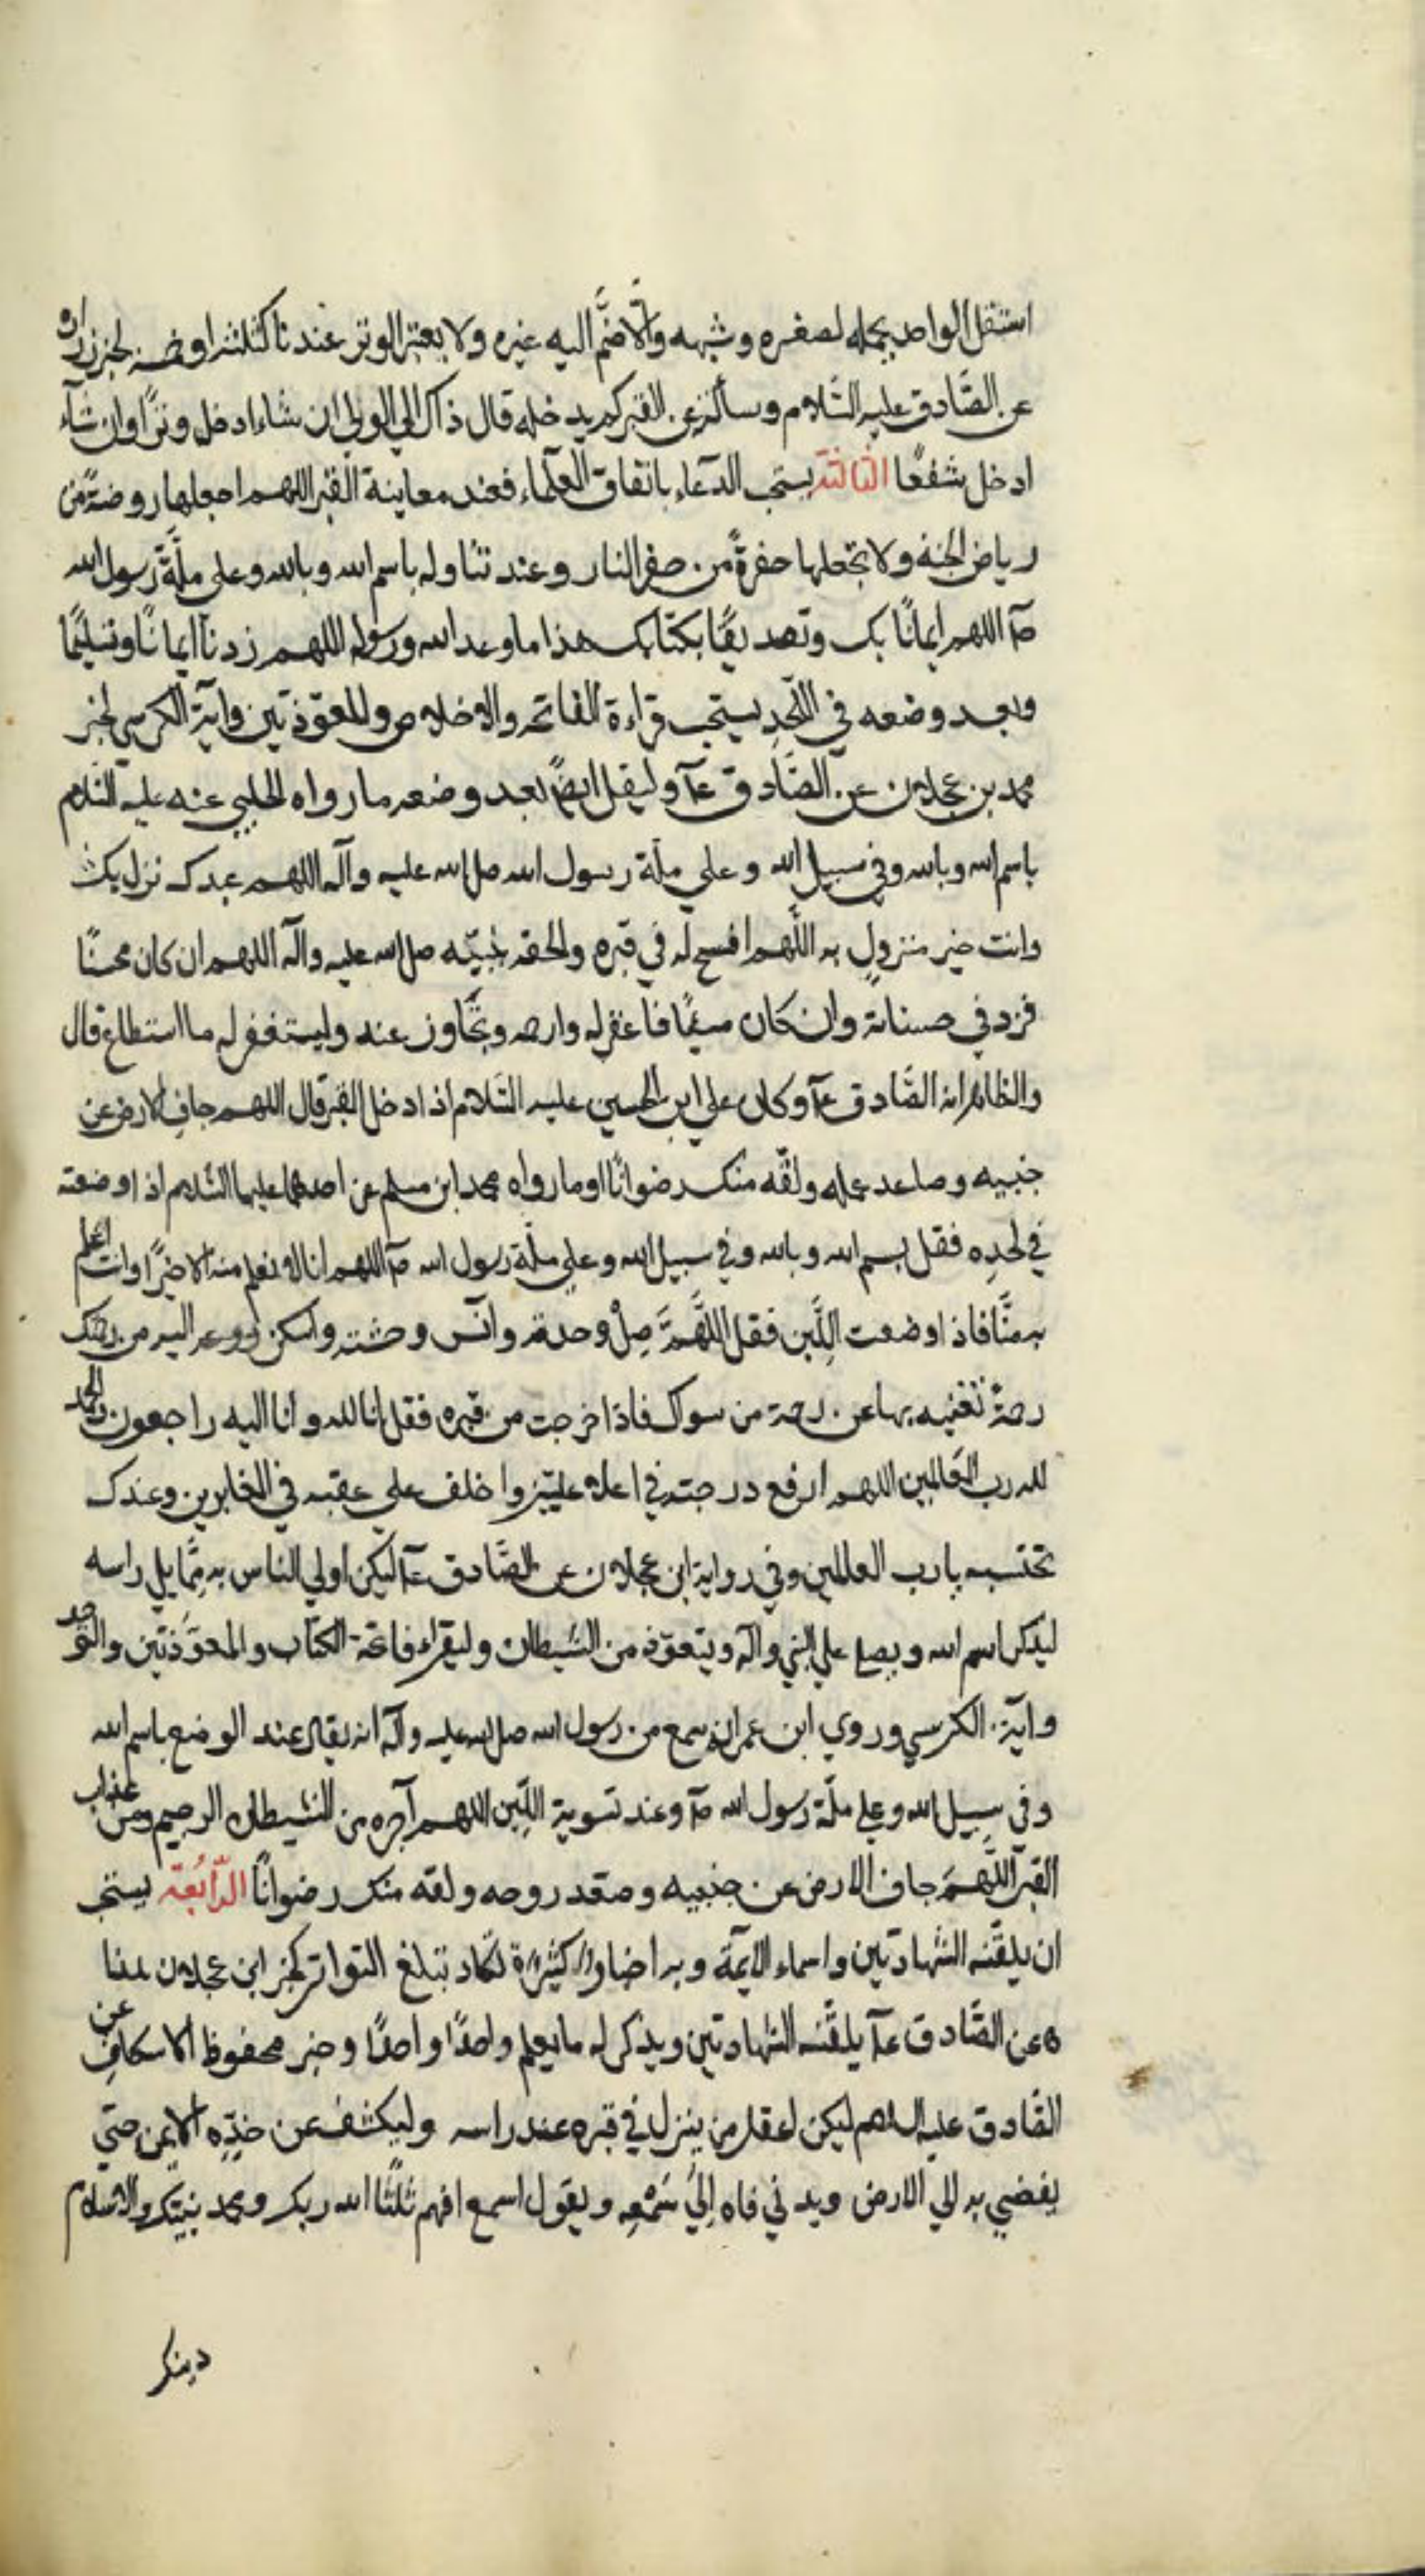 استقل الواحد بحمله لصغره وشبهه والّا ضمّ اليه غيره ولا يعتبر الوتر عندنا كثلثة او خمسة لخبر زراره
عن الصّادق عليه السّلام وسألته عن القبر كم يدخله قال ذاك الي الولي ان شاء ادخل وترًا وان شآء
ادخل شفعًا الثالثة يستحب الدّعاء باتفاق العلماء فعند معاينة القبر اللهم اجعلها روضةً من
رياض الجنة ولا تجعلها حفرةً من حفر النار وعند تناوله باسم الله وبالله وعلى ملّة رسول الله
صآ اللهم ايمانًا بك وتصديقًا بكتابك هذا ما وعد الله ورسوله اللهم زدنا ايمانًا وتسليمًا
وبعد وضعه في اللّحدِ يستحب قراءة الفاتحه والاخلاص والمعوّذتين وآية الكرسي لخبر
محمد بن عجلان عن الصّادق عآ وليقل ايضًا بعد وضعه ما رواه الحلبي عنه عليه السّلام
باسم الله وبالله وفي سبيل الله وعلي ملّة رسول الله صلى الله عليه وآله اللهم عبدك نزل بك
وانت خير منزولٍ به اللّهم افسح له في قبره والحقه بنبيّه صلى الله عليه وآله اللهم ان كان محسنًا
فزد في حسناته وان كان مسيئًا فاغفر له وارحمه وتجاوز عنه وليستغفر له ما استطاع قال
والظاهر انه الصّادق عآ وكان علي ابن الحسين عليه السّلام اذا دخل القبر قال اللهم جافِ الارض عن
جنبيه وصاعد عمله ولقّه منك رضوانًا او ما رواه محمد ابن مسلم عن احدهما عليهما السّلام اذا وضعته
في لحدِه فقل بسم الله وبالله وفي سبيل الله وعلي ملّة رسول الله صآ اللهم انا لا نعلم منه الا خيرًا وانت اعلم
به منّا فاذا وضعت اللّبن فقل اللّهمَّ صِلْ وحدته وآنس وحشته واسكن اليه من رحمتك
رحمةً تغنيه بها عن رحمة من سواك فاذا خرجت من قبره فقل انا لله وانا اليه راجعون والحمد
لله رب العَالمين اللهم ارفع درجته في اعلا عليّين واخلف علي عقبه في الغابرين وعندك
تحتسبه يارب العالمين وفي رواية ابن عجلان عن الصّادق عآ ليكن اولي الناس به ممّا يلي راسه
ليذكر اسم الله ويصلي علي النبي وآله ويتعوّذ من الشّيطان وليقراء فاتحة الكتاب والمعوّذتين والتوحيد
وآية الكرسي وروي ابن عمر انه سمع من رسول الله صلى الله عليه وآله انه يقال عند الوضع باسم الله
وفي سبيل الله وعلي ملّة رسول الله صآ وعند تسوية اللّبن اللهم آجره من الشيطان الرجيم ومن عذاب
القبر اللّهمّ جاف الارض عن جنبيه وصعّد روحه ولقّه منك رضوانًا الرّابعة يستحب
ان يلقّنه الشهادتين واسماء الايمّة وبه اخبار كثيرة تكاد تبلغ التواتر كخبر ابن عجلان
عن الصّادق عآ يلقّنه الشهادتين ويذكر له ما يعلم واحدًا واحدًا وخبر محفوظ الاسكاف عن
الصّادق عليه السلام ليكن اعقل من ينزل في قبره عند راسه وليكشف عن خدّه الايمن حتي
يفضي به الي الارض ويدني فاه الي سَمْعِه ويقول اسمع افهم ثلثًا الله ربك ومحمد نبيّك والاسلام
دينك